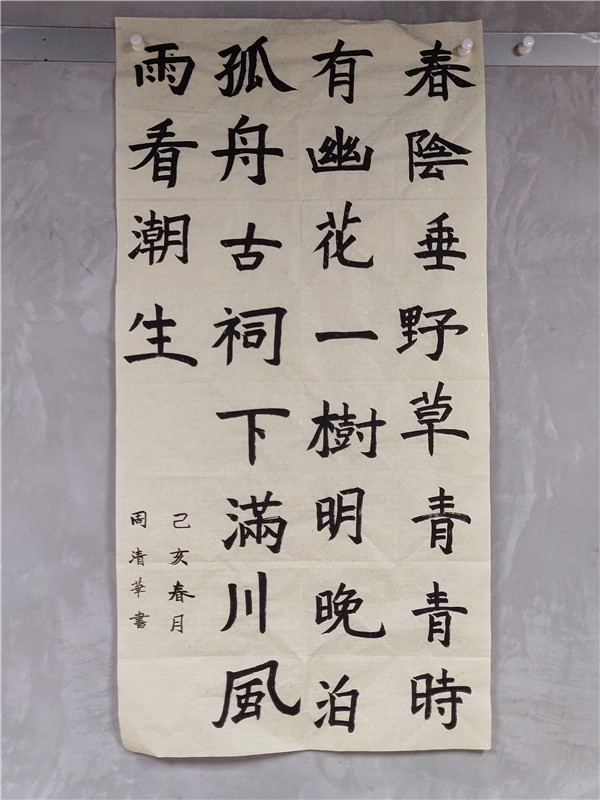 春陰垂野草青青時
有幽花一樹明晚泊
孤舟古祠下滿川風
雨看潮生
己亥春月
周清華書